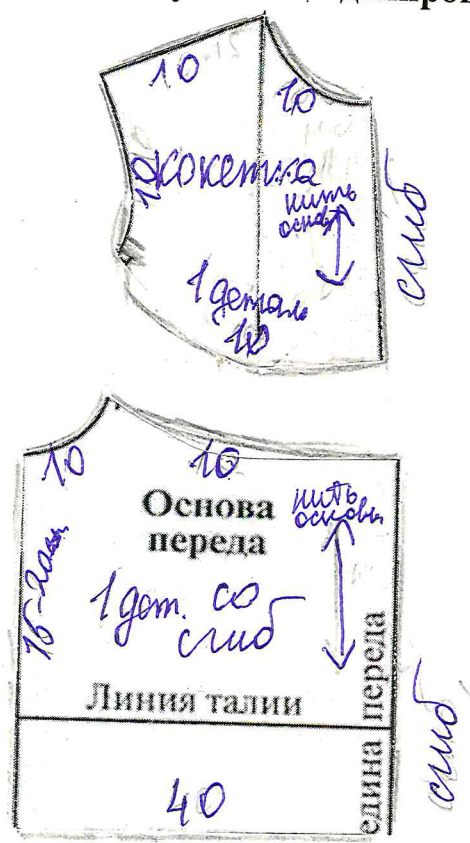 10
10
кокетка
нить
основ
1 деталь
10
сгиб
10
10
Основа
переда
нить
основы
1 дет. со
сгиб
Линия талии
переда
сгиб
40